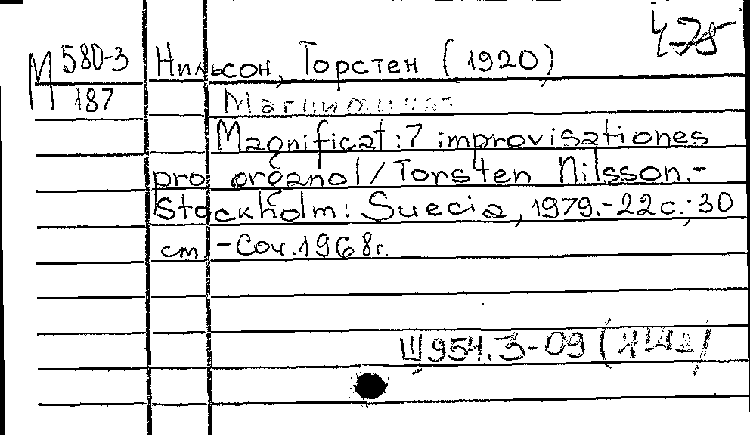 475
М 580-3
187
Нильсон, Торстен (1920)
Магнификат
Magnificat: 7 improvisationes
pro organol/Torsten Nilsson.-
Stockholm: Suecia, 1979.-22с.; 30
см -Соч. 1968г.
Щ954.3-09